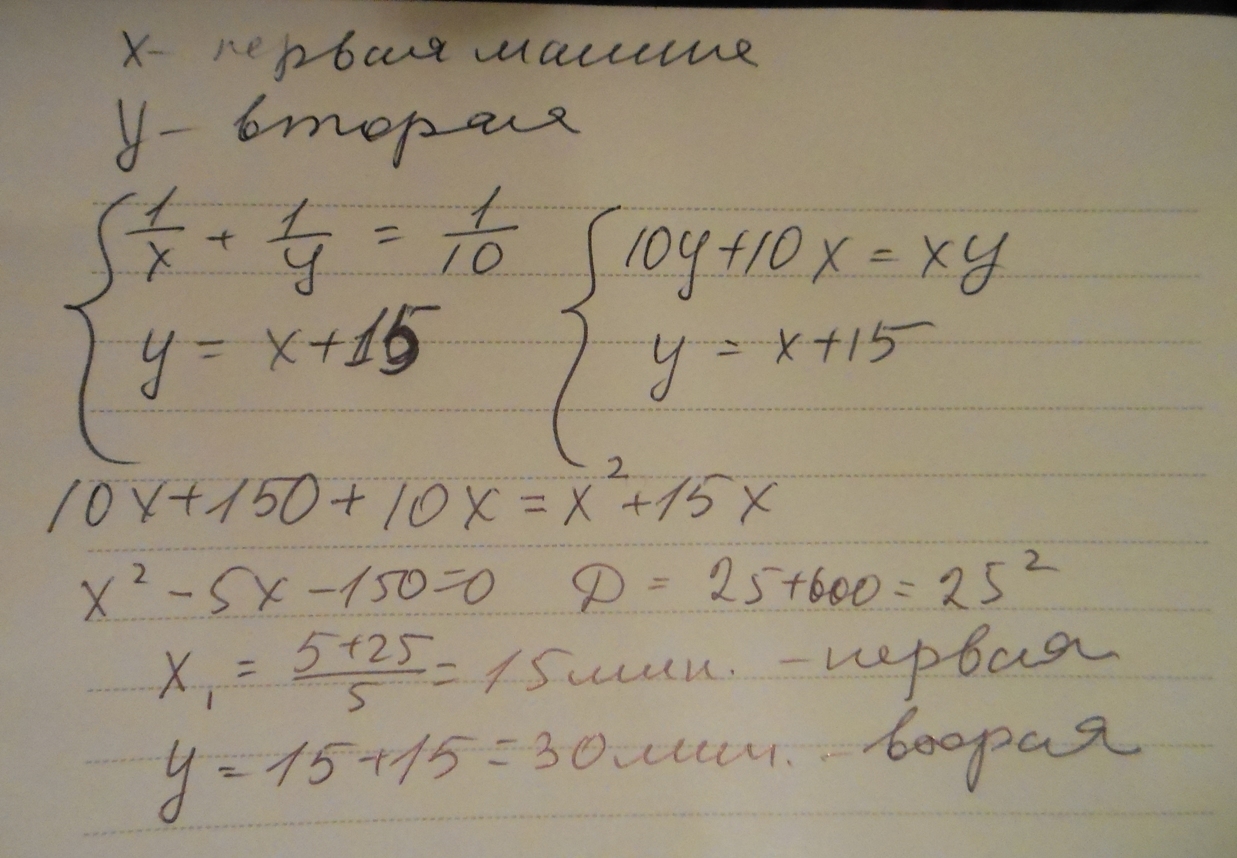 x- первая машине
y- вторая
1/x + 1/y = 1/10
10y+10x = xy
y = x+15
y = x+15
10x+150+10x = x²+15x
x²-5x-150=0 D = 25+600=25²
x₁ = (5+25)/5 = 15 мин. -первая
y = 15+15=30 мин. - вторая